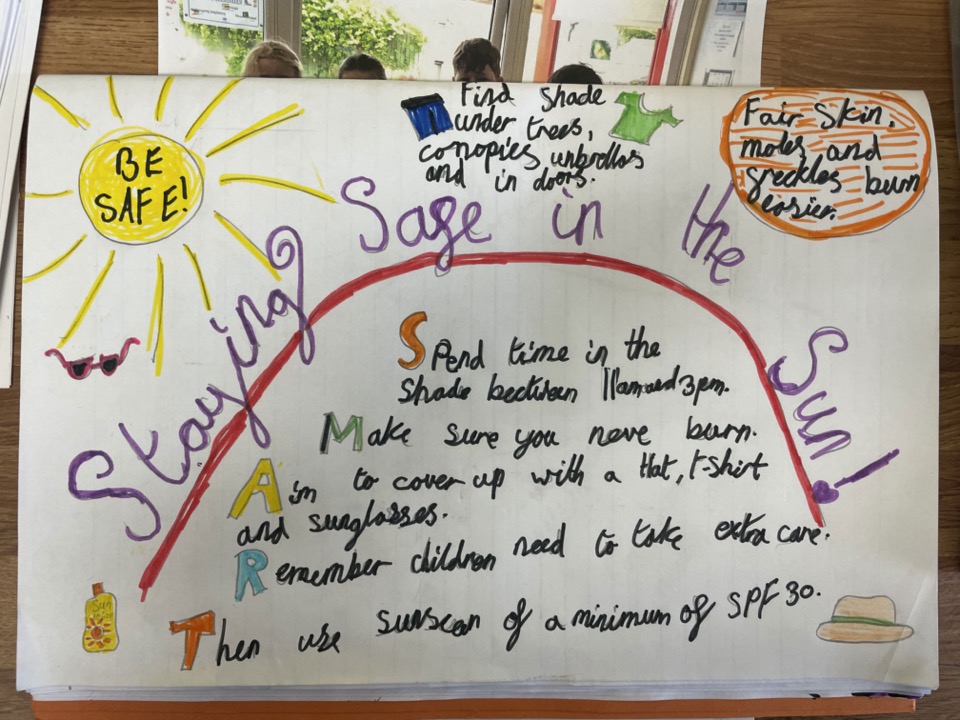 BE
SAFE!
Find shade
under trees,
canopies unbrellas
and in doors.
Fair skin,
moles and
freckles burn
easier.
Staying Safe in the Sun!
Spend time in the
Shade bectween 11am and 3pm.
Make sure you neve burn.
Aim to cover up with a Hat, t-shirt
and sunglasses.
Remember children need to take extra care.
Then use sunscan of a minimum of SPF 30.
Sun